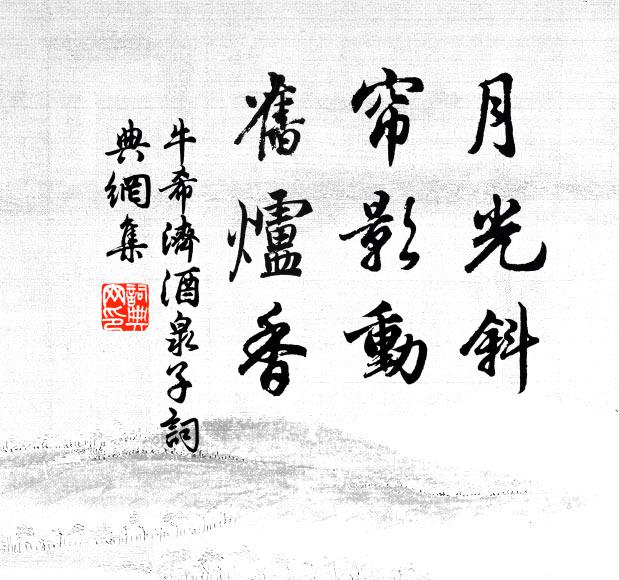 月光斜
帘影動
舊爐香
牛希濟酒泉子詞
典網集
詞典网印